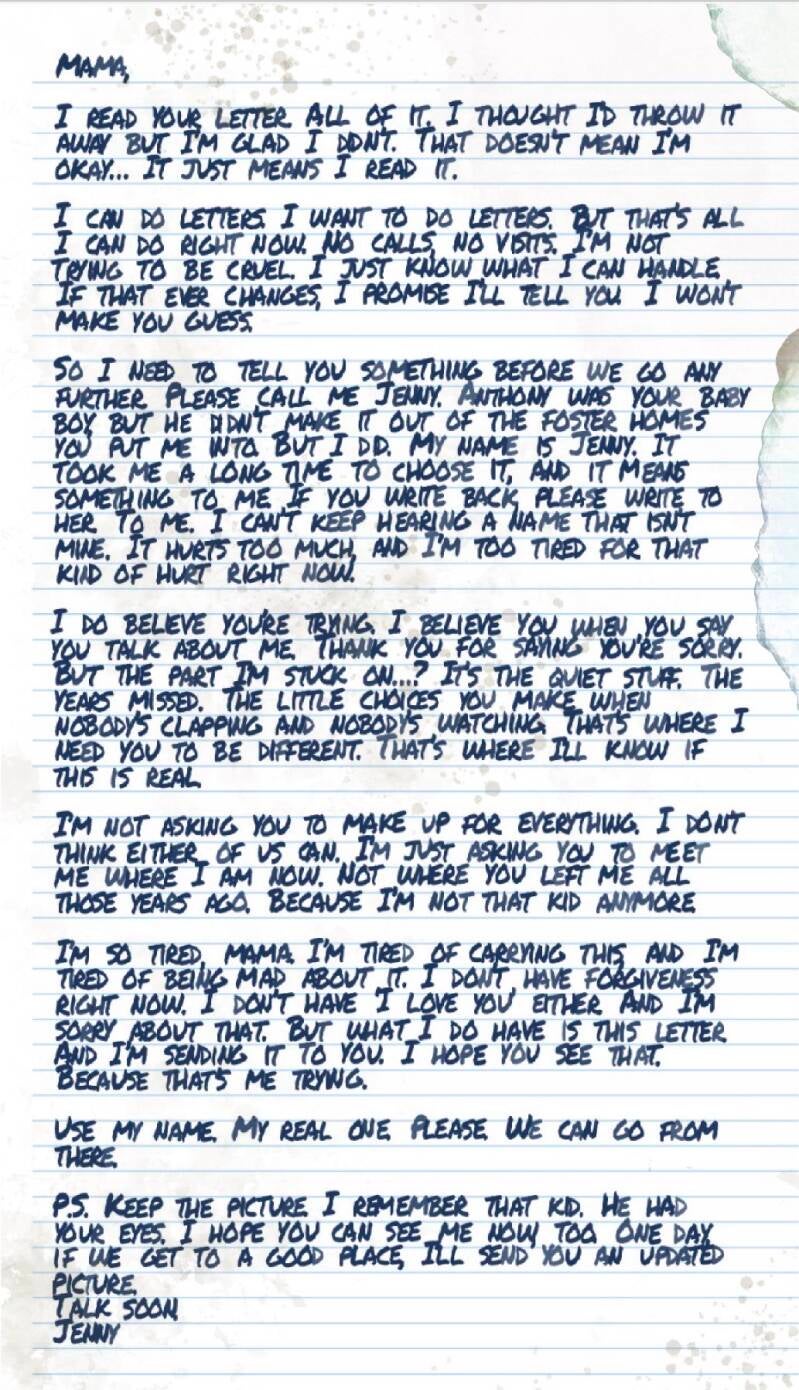 MAMA,
I READ YOUR LETTER. ALL OF IT. I THOUGHT I'D THROW IT
AWAY BUT I'M GLAD I DIDN'T. THAT DOESN'T MEAN I'M
OKAY... IT JUST MEANS I READ IT.
I CAN DO LETTERS. I WANT TO DO LETTERS. BUT THAT'S ALL
I CAN DO RIGHT NOW. NO CALLS, NO VISITS. I'M NOT
TRYING TO BE CRUEL. I JUST KNOW WHAT I CAN HANDLE.
IF THAT EVER CHANGES, I PROMISE I'LL TELL YOU. I WON'T
MAKE YOU GUESS.
SO I NEED TO TELL YOU SOMETHING BEFORE WE GO ANY
FURTHER. PLEASE CALL ME JENNY. ANTHONY WAS YOUR BABY
BOY, BUT HE DIDN'T MAKE IT OUT OF THE FOSTER HOMES
YOU PUT ME INTO. BUT I DID. MY NAME IS JENNY. IT
TOOK ME A LONG TIME TO CHOOSE IT, AND IT MEANS
SOMETHING TO ME. IF YOU WRITE BACK, PLEASE WRITE TO
HER. TO ME. I CAN'T KEEP HEARING A NAME THAT ISN'T
MINE. IT HURTS TOO MUCH, AND I'M TOO TIRED FOR THAT
KIND OF HURT RIGHT NOW.
I DO BELIEVE YOU'RE TRYING. I BELIEVE YOU WHEN YOU SAY
YOU TALK ABOUT ME. THANK YOU FOR SAYING YOU'RE SORRY.
BUT THE PART I'M STUCK ON...? IT'S THE QUIET STUFF. THE
YEARS MISSED. THE LITTLE CHOICES YOU MAKE WHEN
NOBODY'S CLAPPING AND NOBODY'S WATCHING. THAT'S WHERE I
NEED YOU TO BE DIFFERENT. THAT'S WHERE I'LL KNOW IF
THIS IS REAL.
I'M NOT ASKING YOU TO MAKE UP FOR EVERYTHING. I DON'T
THINK EITHER OF US CAN. I'M JUST ASKING YOU TO MEET
ME WHERE I AM NOW. NOT WHERE YOU LEFT ME ALL
THOSE YEARS AGO. BECAUSE I'M NOT THAT KID ANYMORE.
I'M SO TIRED, MAMA. I'M TIRED OF CARRYING THIS, AND I'M
TIRED OF BEING MAD ABOUT IT. I DON'T HAVE FORGIVENESS
RIGHT NOW. I DON'T HAVE 'I LOVE YOU' EITHER. AND I'M
SORRY ABOUT THAT. BUT WHAT I DO HAVE IS THIS LETTER.
AND I'M SENDING IT TO YOU. I HOPE YOU SEE THAT.
BECAUSE THAT'S ME TRYING.
USE MY NAME. MY REAL ONE. PLEASE. WE CAN GO FROM
THERE.
P.S. KEEP THE PICTURE. I REMEMBER THAT KID. HE HAD
YOUR EYES. I HOPE YOU CAN SEE ME NOW, TOO. ONE DAY,
IF WE GET TO A GOOD PLACE, I'LL SEND YOU AN UPDATED
PICTURE.
TALK SOON,
JENNY